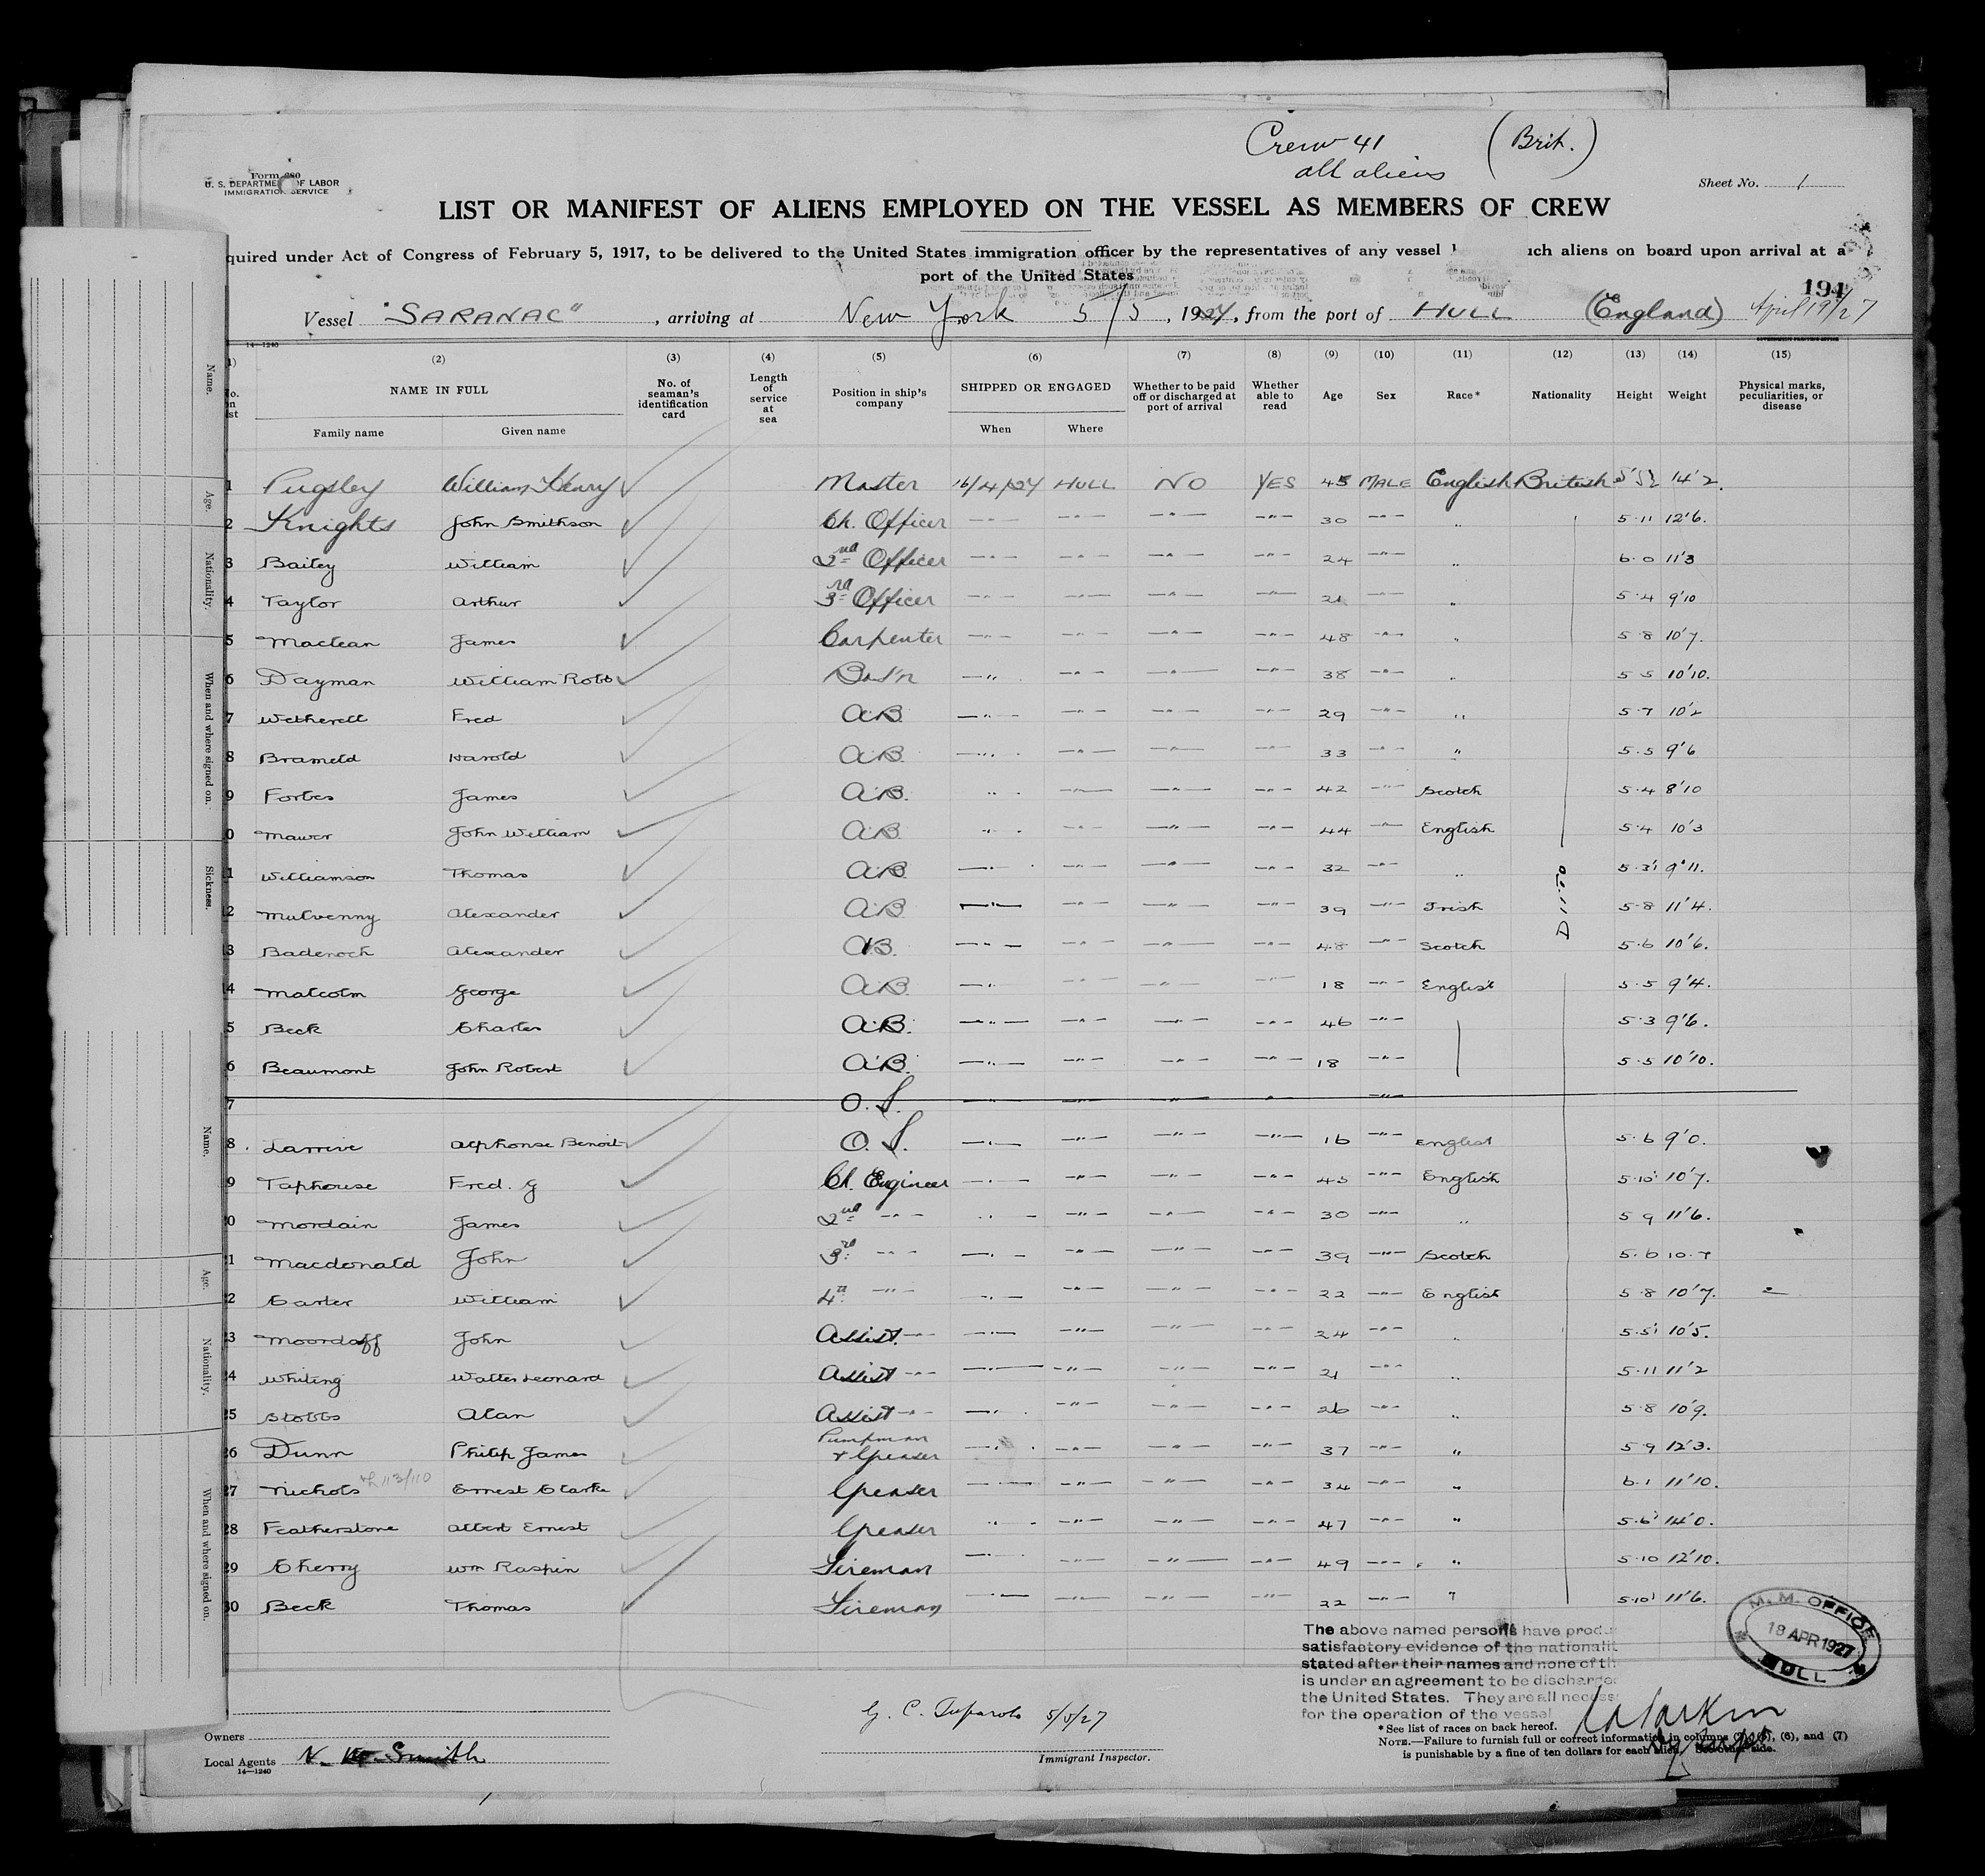 Crew 41 (Brit.)
all aliens
Form 680
U. S. DEPARTMENT OF LABOR
IMMIGRATION SERVICE
Sheet No. 1
LIST OR MANIFEST OF ALIENS EMPLOYED ON THE VESSEL AS MEMBERS OF CREW
quired under Act of Congress of February 5, 1917, to be delivered to the United States immigration officer by the representatives of any vessel uch aliens on board upon arrival at a
port of the United States
194
Vessel "SARANAC", arriving at New York 5/5, 1927, from the port of HULL (England) April 19/27
14—1240
(2) (3) (4) (5) (6) (7) (8) (9) (10) (11) (12) (13) (14) (15)
NAME IN FULL No. of seaman's identification card Length of service at sea Position in ship's company SHIPPED OR ENGAGED Whether to be paid off or discharged at port of arrival Whether able to read Age Sex Race* Nationality Height Weight Physical marks, peculiarities, or disease
Family name Given name When Where
1 Pugsley William Henry Master 16/4/27 HULL NO YES 45 MALE English British 5'5½ 14'2.
2 Knights John Smithson Ch. Officer — " — — " — — " — — " — 30 — " — " 5·11 12'6.
3 Bailey William 2nd Officer — " — — " — — " — — " — 24 — " — " 6·0 11'3
4 Taylor Arthur 3rd Officer — " — — " — — " — — " — 21 — " — " 5·4 9'10
5 Maclean James Carpenter — " — — " — — " — — " — 48 — " — " 5·8 10'7.
6 Dayman William Robb Bos'n — " — — " — — " — — " — 38 — " — " 5·5 10'10.
7 Wetherell Fred A.B. — " — — " — — " — — " — 29 — " — " 5·7 10'2
8 Brameld Harold A.B. — " — — " — — " — — " — 33 — " — " 5·5 9'6
9 Forbes James A.B. " — " — — " — — " — 42 — " — Scotch 5·4 8'10
0 Mawer John William A.B. " — " — — " — — " — 44 — " — English 5·4 10'3
1 Williamson Thomas A.B. — " — — " — — " — — " — 32 — " — " 5·3½ 9'11.
2 Mulvenny Alexander A.B. — " — — " — — " — — " — 39 — " — Irish Ditto 5·8 11'4.
3 Badenoch Alexander A.B. — " — — " — — " — — " — 48 — " — Scotch 5·6 10'6.
4 Malcolm George A.B. — " — " — — " — — " — 18 — " — English 5·5 9'4.
5 Beck Charles A.B. — " — — " — — " — — " — 46 — " — 5·3 9'6.
6 Beaumont John Robert A.B. — " — — " — — " — — " — 18 — " — 5·5 10'10.
7 O. S. — " —
8 Larrive Alphonse Benoit O. S. — " — — " — — " — — " — 16 — " — English 5·6 9'0.
9 Taphouse Fred. G Ch. Engineer — " — — " — — " — — " — 45 — " — English 5·10½ 10'7.
0 Mordain James 2nd — " — " — — " — — " — — " — 30 — " — " 5 9 11'6.
1 Macdonald John 3rd — " — — " — — " — — " — — " — 39 — " — Scotch 5·6 10·7
2 Carter William 4th — " — — " — — " — — " — — " — 22 — " — English 5·8 10'7.
3 Moordaff John Assist. — " — — " — — " — — " — — " — 24 — " — " 5·5½ 10'5.
4 Whiting Walter Leonard Assist — " — — " — — " — — " — — " — 21 — " — " 5·11 11'2
25 Stobbs Alan Assist — " — — " — — " — — " — — " — 26 — " — " 5·8 10'9.
26 Dunn Philip James Pumpman & Greaser — " — — " — — " — — " — 37 — " — " 5 9 12'3.
27 Nichols 113/110 Ernest Clarke Greaser — " — — " — — " — — " — 34 — " — " 6·1 11'10.
28 Featherstone Albert Ernest Greaser " — " — — " — — " — 47 — " — " 5·6½ 14'0.
29 Cherry Wm Raspin Fireman — " — — " — — " — — " — 49 — " — " 5·10 12'10.
30 Beck Thomas Fireman — " — — " — — " — — " — 22 — " — " 5·10½ 11'6.
The above named persons have prod
satisfactory evidence of the nationalit
stated after their names and none of th
is under an agreement to be discharge
the United States. They are all necess
for the operation of the vessel
M. M. OFFICE
18 APR 1927
HULL
5/5/27
Immigrant Inspector.
Owners
Local Agents N. W. Smith
14—1240
*See list of races on back hereof.
NOTE.—Failure to furnish full or correct information in columns (2), (5), (6), and (7)
is punishable by a fine of ten dollars for each alien. See other side.
Name.
Age.
Nationality.
When and where signed on.
Sickness.
Name.
Age.
Nationality.
When and where signed on.